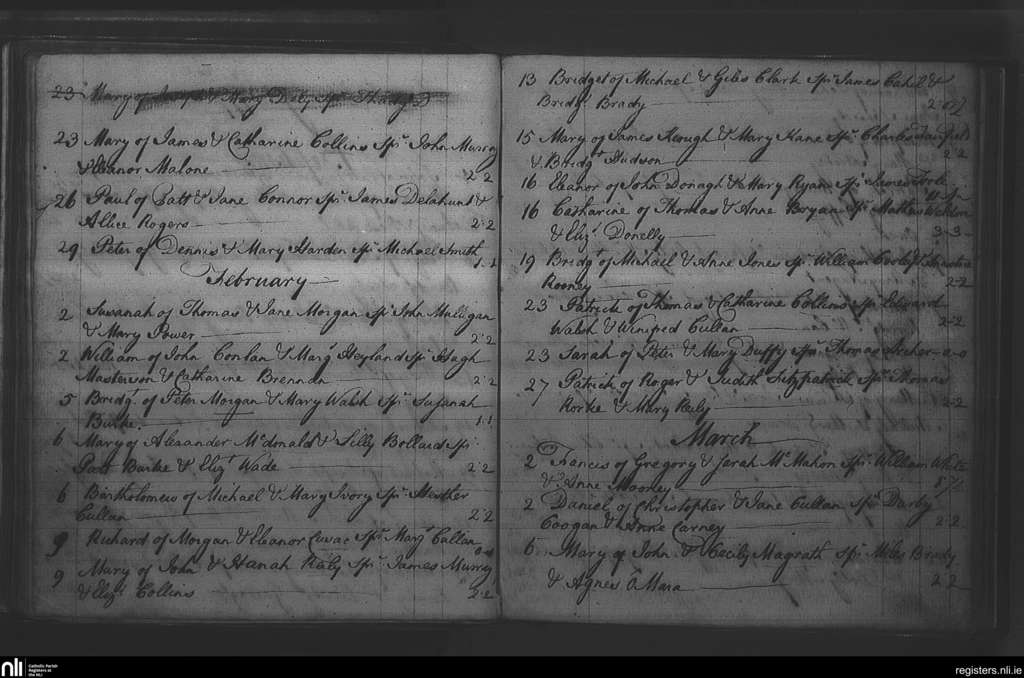 23 Mary of Joseph & Mary Daly Sprs Thady D
23 Mary of James & Catharine Collins Sprs John Murray
& Eleanor Malone 2"2
26 Paul of Patt & Jane Connor Sprs James Delahunt &
Allice Rogers 2"2
29 Peter of Dennis & Mary Harden Spr Michael Smith
1-1
February
2 Susanah of Thomas & Jane Morgan Sprs John Mulligan
& Mary Power 2"2
2 William of John Conlan & Margt Heyland Sprs Hugh
Masterson & Catharine Brennan 2"2
5 Bridgt of Peter Morgan & Mary Walsh Spr Susanah
Burke. 1 1
6 Mary of Alexander McDonald & Lilly Bollard Sprs
Patt Burke & Elizt Wade 2"2
6 Bartholomew of Michael & Mary Ivory Sprs
Cullan 2"2
9 Richard of Morgan & Eleanor Spr Margt Callan
9 Mary of John & Hanah Realy Sprs James Murray
& Elizt Collins 2"2
13 Bridget of Michael & Giles Clark Sprs James Cahil &
Bridgt Brady
15 Mary of James Keough & Mary Kane Sprs Charles
& Bridgt Hudson 2"2
16 Eleanor of John Donagh & Mary Ryan Spr James Toole
16 Catharine of Thomas & Anne Bryan Sprs Mathew Weldon
& Elizt Donelly 3-3-
19 Bridgt of Michael & Anne Jones Sprs William
Rooney 2-2
23 Patrick of Thomas & Catharine Collins Sprs Edward
Walsh & Winifred Cullan 2-2
23 Sarah of Peter & Mary Duffy Spr Thomas Archer-0-0
27 Patrick of Roger & Judith Fitzpatrick Sprs Thomas
Rorke & Mary Realy 2-2
March
2 Francis of Gregory & Sarah McMahon Sprs William White
& Anne Mooney
2 Daniel of Christopher & Jane Cullan Sprs Darby
Coogan & Anne Carney 2"2
6 Mary of John & Cecily Magrath Sprs Miles Brady
& Agnes O'Mara 2 2
nli
Catholic Parish
Registers at
the NLI
registers.nli.ie